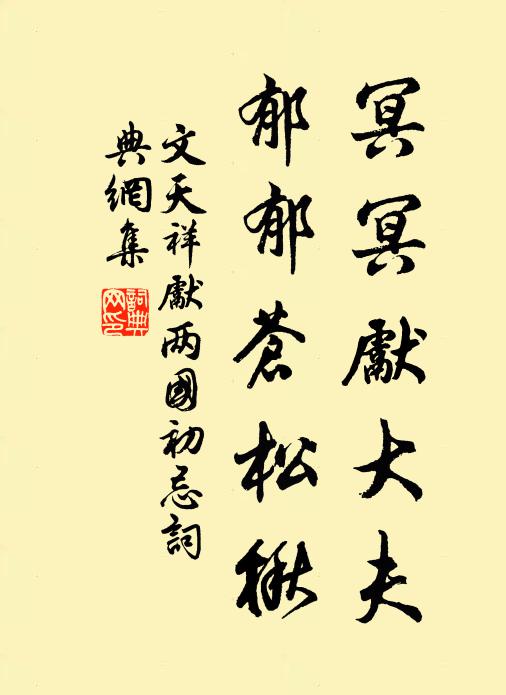 冥冥獻大夫
郁郁蒼松楸
文天祥獻两國初忌詞
典網集
詞典網印